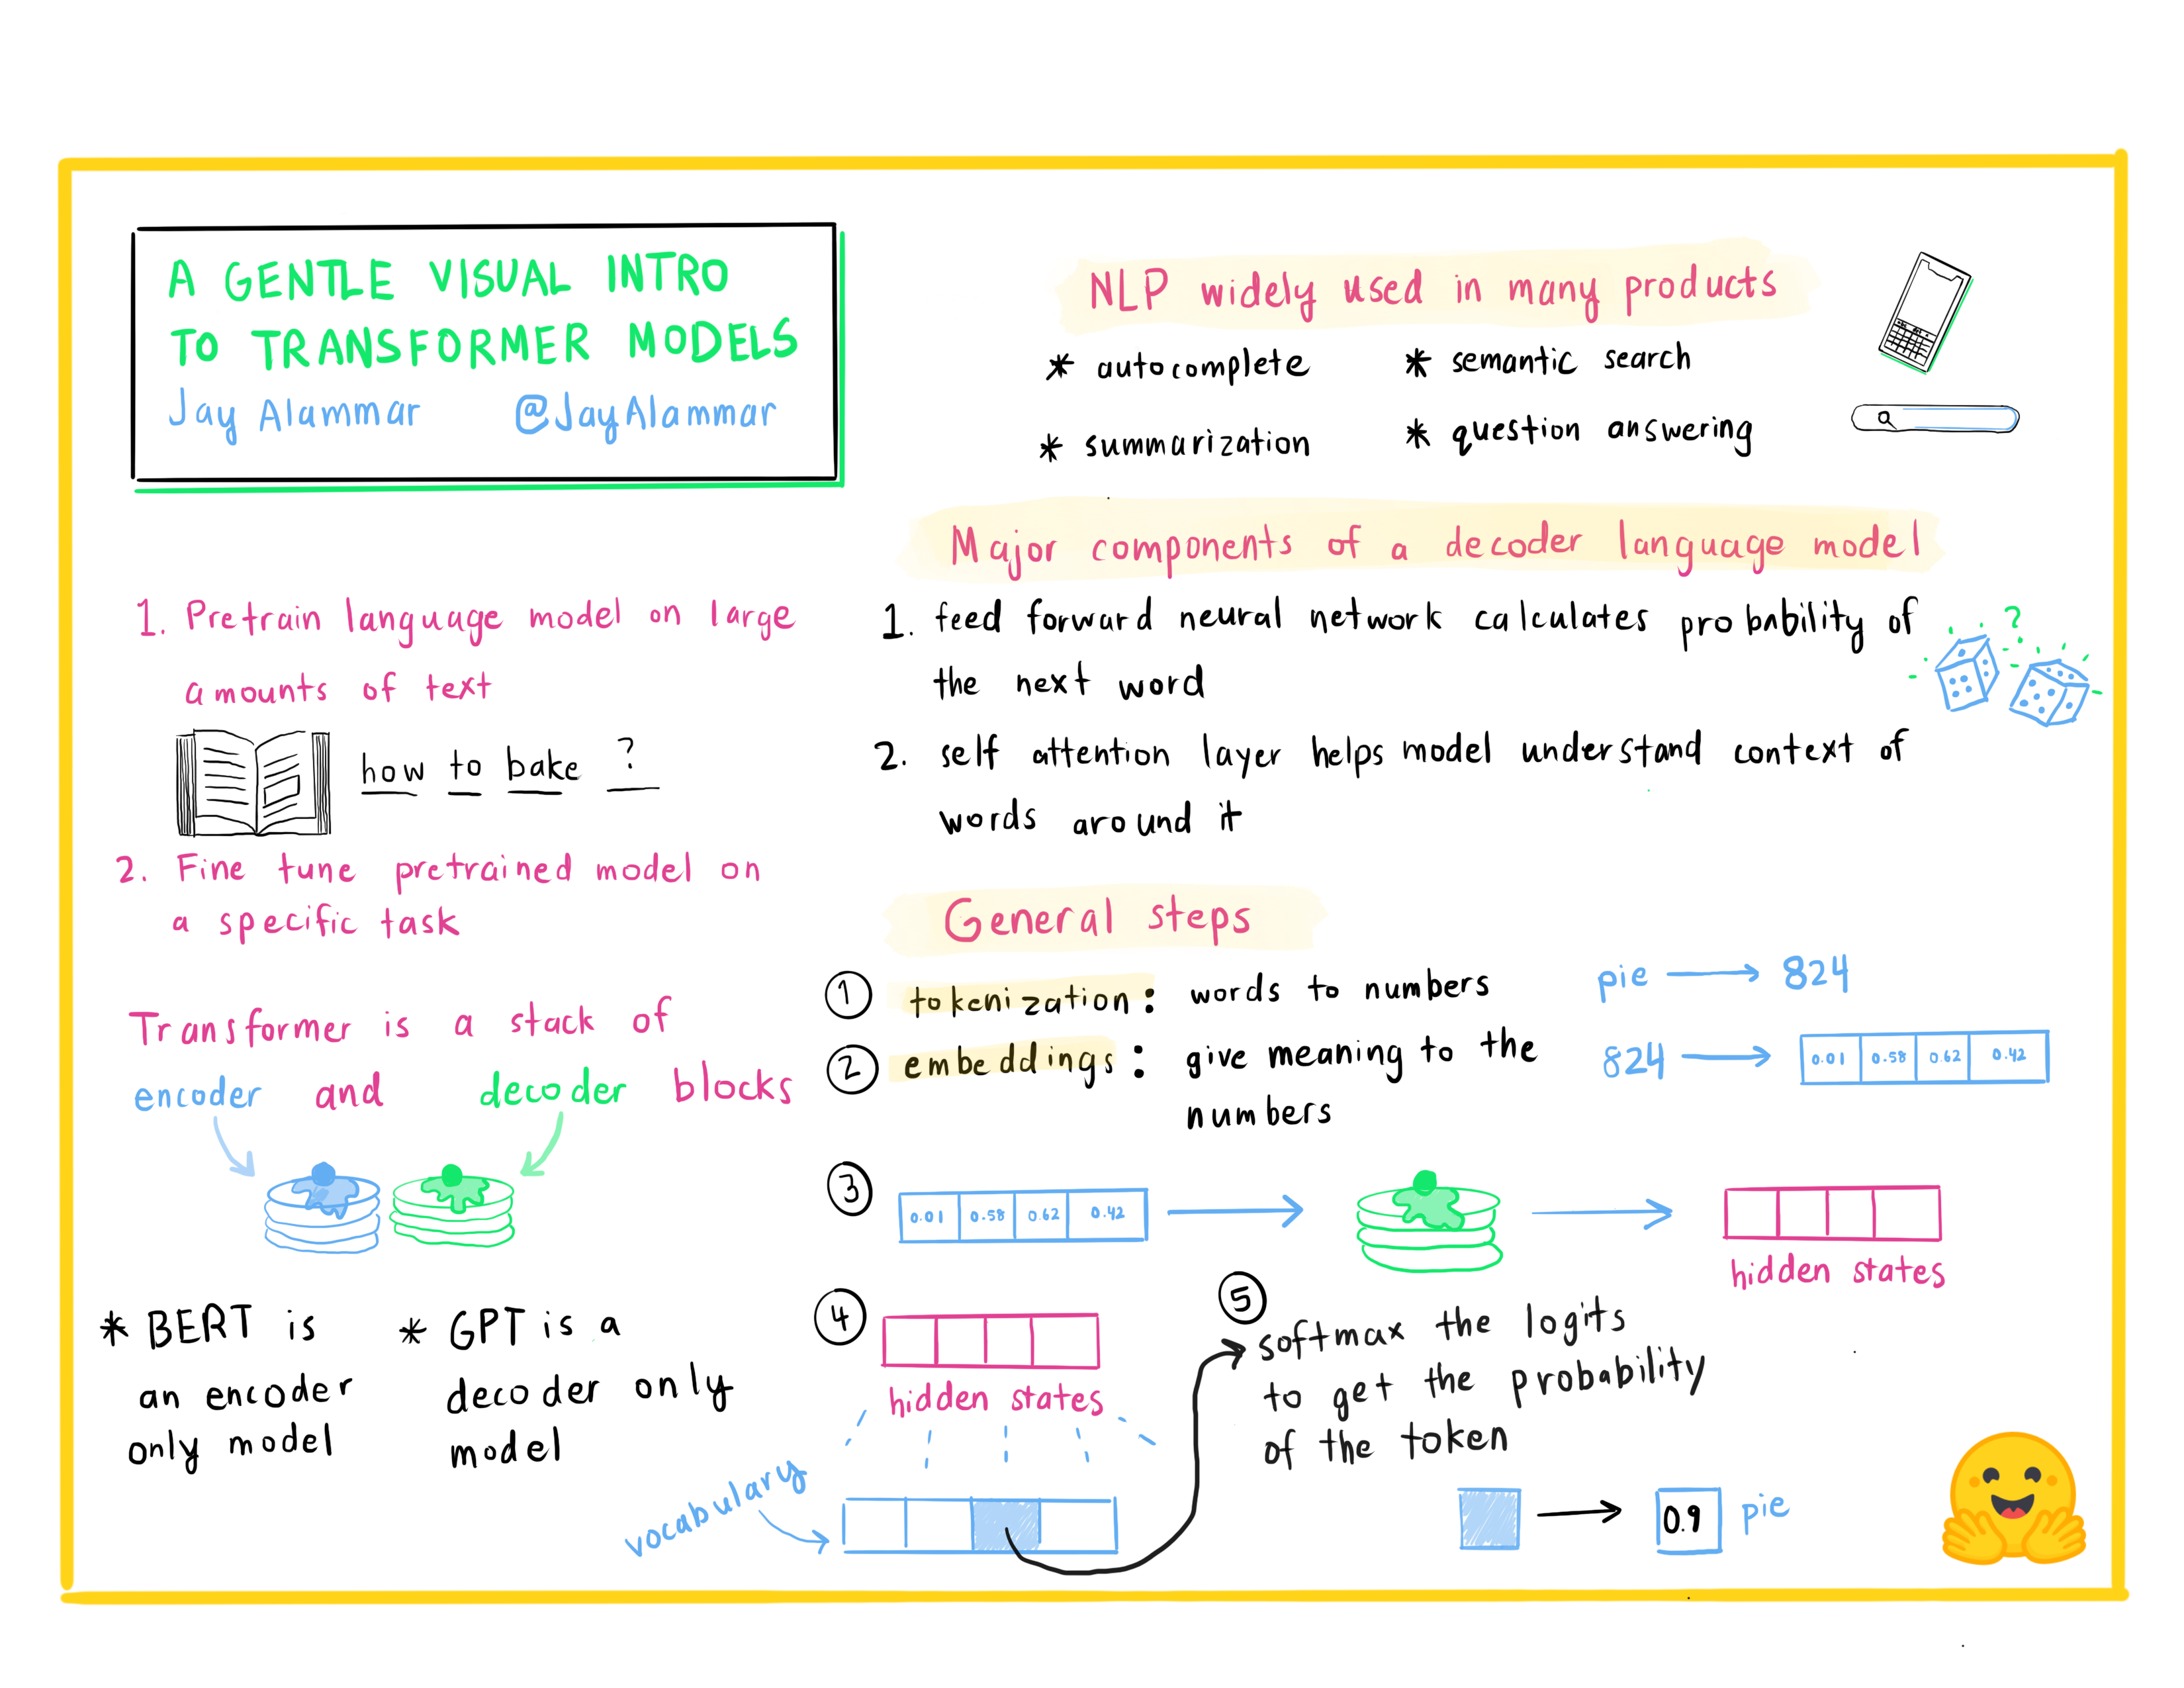 A GENTLE VISUAL INTRO
TO TRANSFORMER MODELS
Jay Alammar @JayAlammar
1. Pretrain language model on large
amounts of text
how to bake ?
2. Fine tune pretrained model on
a specific task
Transformer is a stack of
encoder and decoder blocks
* BERT is
an encoder
only model
* GPT is a
decoder only
model
NLP widely used in many products
* autocomplete * semantic search
* summarization * question answering
Major components of a decoder language model
1. feed forward neural network calculates probability of
the next word
?
2. self attention layer helps model understand context of
words around it
General steps
1 tokenization: words to numbers pie → 824
2 embeddings: give meaning to the
numbers
824 → 0.01 0.58 0.62 0.42
3 0.01 0.58 0.62 0.42
hidden states
4
hidden states
vocabulary
5
softmax the logits
to get the probability
of the token
0.9 pie